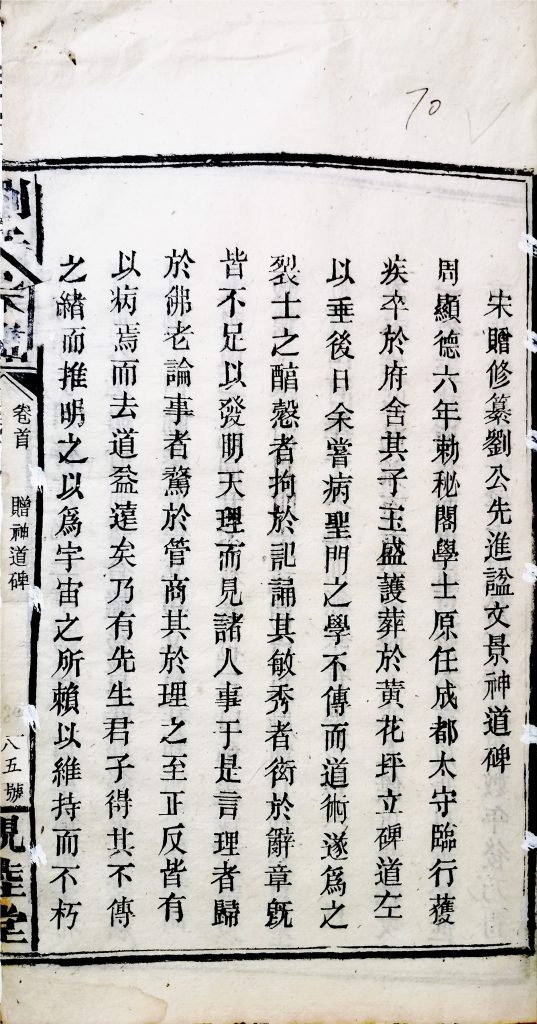 70
宋贈修纂劉公先進諡文景神道碑
周顯德六年勅秘閣學士原任成都太守臨行獲
疾卒於府舍其子玉盛護葬於黃花坪立碑道左
以垂後日余嘗病聖門之學不傳而道術遂為之
裂士之醇慤者拘於記誦其敏秀者衒於辭章旣
皆不足以發明天理而見諸人事于是言理者歸
於佛老論事者騖於管商其於理之至正反皆有
以病焉而去道益遠矣乃有先生君子得其不傳
之緒而推明之以爲宇宙之所賴以維持而不朽
卷首
贈神道碑
八五號